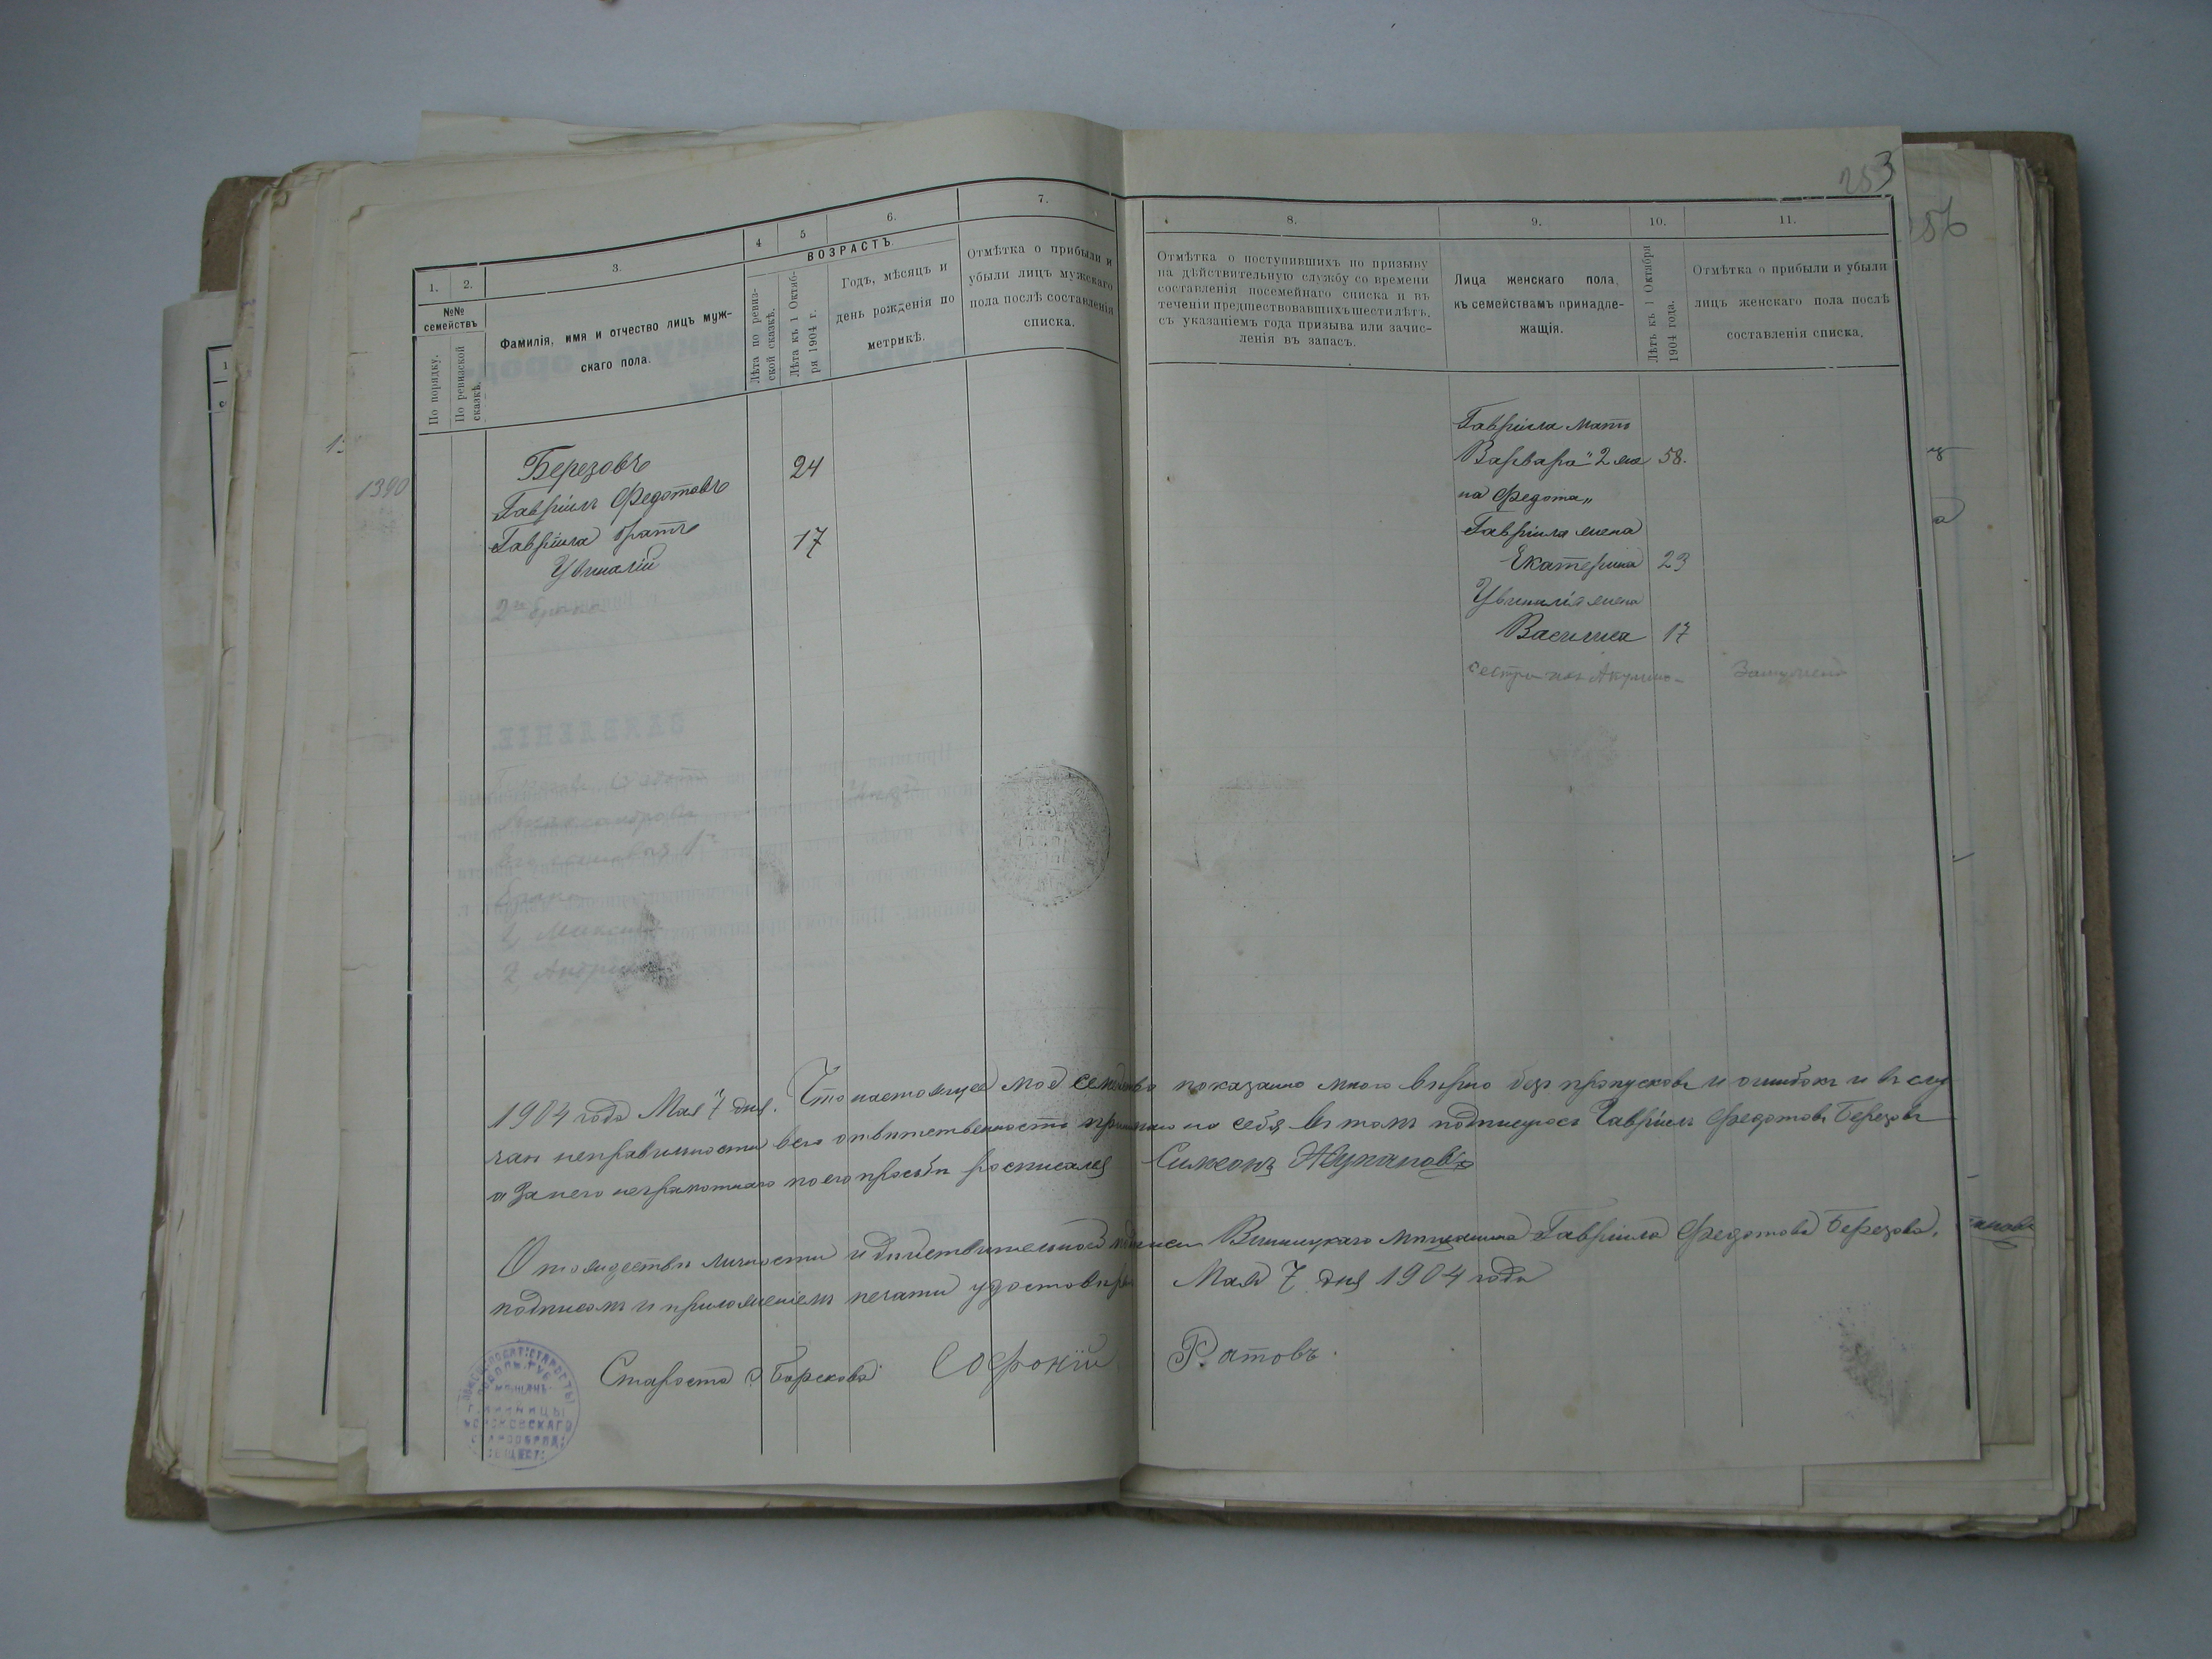 253
256
1390
1.
2.
3.
4
5
6.
7.
№№
семействъ
По порядку.
По ревизской
сказкѣ.
Фамилія, имя и отчество лицъ муж-
скаго пола.
ВОЗРАСТЪ.
Лѣта по ревиз-
ской сказкѣ.
Лѣта къ 1 Октяб-
ря 1904 г.
Годъ, мѣсяцъ и
день рожденія по
метрикѣ.
Отмѣтка о прибыли и
убыли лицъ мужскаго
пола послѣ составленія
списка.
Березовъ
Гавріилъ Федотовъ 24
Гавріила братъ
Увиналій 17
2го брака
ЗАЯВЛЕНІЕ.
8.
9.
10.
11.
Отмѣтка о поступившихъ по призыву
на дѣйствительную службу со времени
составленія посемейнаго списка и въ
теченіи предшествовавшихъ шести лѣтъ,
съ указаніемъ года призыва или зачис-
ленія въ запасъ.
Лица женскаго пола,
къ семействамъ принадле-
жащія.
Лѣтъ къ 1 Октября
1904 года.
Отмѣтка о прибыли и убыли
лицъ женскаго пола послѣ
составленія списка.
Гавріила мать
Варвара „2 же 58.
на Федота„
Гавріила жена
Екатерина 23
Увиналія жена
Василиса 17
1904 года Мая „7 дня. Что настоящее мое семейство показано мною вѣрно безъ пропусковъ и ошибокъ и въ слу
чаи неправильности всю отвѣтственность принимаю на себя въ томъ подписуюсь Гавріилъ Федотовъ Березовъ
а за него неграмотнаго по его просьбѣ росписался Симеонъ Жукановъ
О тождествѣ личности и дѣйствительной подписи Винницкаго мѣщанина Гавріила Федотова Березова,
подписомъ и приложеніемъ печати удостовѣряю Мая 7 дня 1904 года
Староста с. Борскова Софоній Ратовъ.